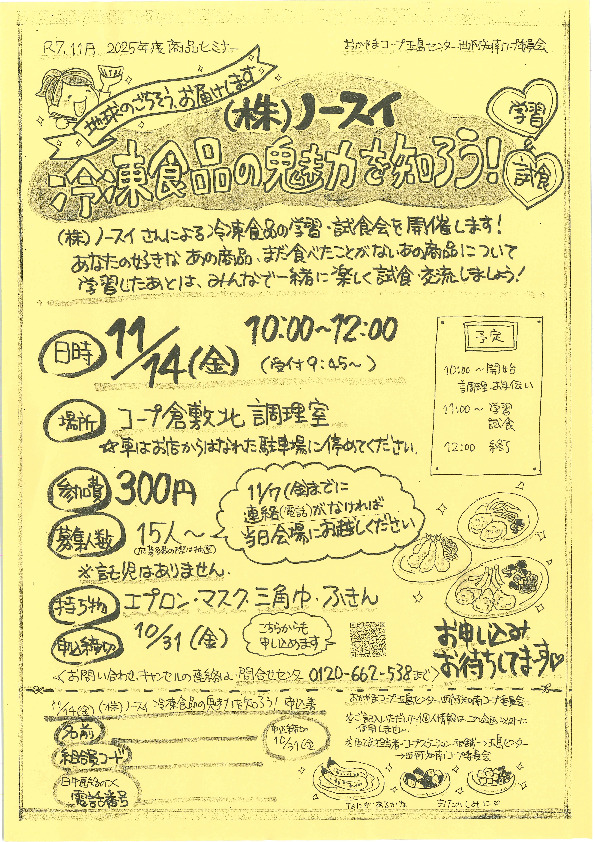 R7.11月 2025年度商品セミナー
おかやまコープ玉島センター
地球のごちそう、お届けします
(株)ノースイ
学習
&
試食
冷凍食品の魅力を知ろう!
(株)ノースイさんによる冷凍食品の学習・試食会を開催します!
あなたの好きなあの商品、まだ食べたことがないあの商品について
学習したあとは、みんなで一緒に楽しく試食・交流しましょう!
日時 11/14(金) 10:00~12:00
(受付9:45~)
予定
10:00~開始
調理・お手伝い
11:00~学習
試食
12:00 終了
場所 コープ倉敷北 調理室
☆車はお店からはなれた駐車場に停めてください.
参加費 300円
募集人数 15人~
11/7(金)までに
連絡(電話)がなければ
当日会場にお越しください
※託児はありません.
持ち物 エプロン・マスク・三角巾・ふきん
申込締切 10/31(金)
こちらからも
申し込めます
お申し込み
お待ちしてます♡
<お問い合わせ、キャンセルの連絡は 問合せセンター 0120-662-538まで>
11/14(金)(株)ノースイ 冷凍食品の魅力を知ろう! 申込書
名前
組合員コード
電話番号
申込締切
10/31(金)
おかやまコープ玉島センター